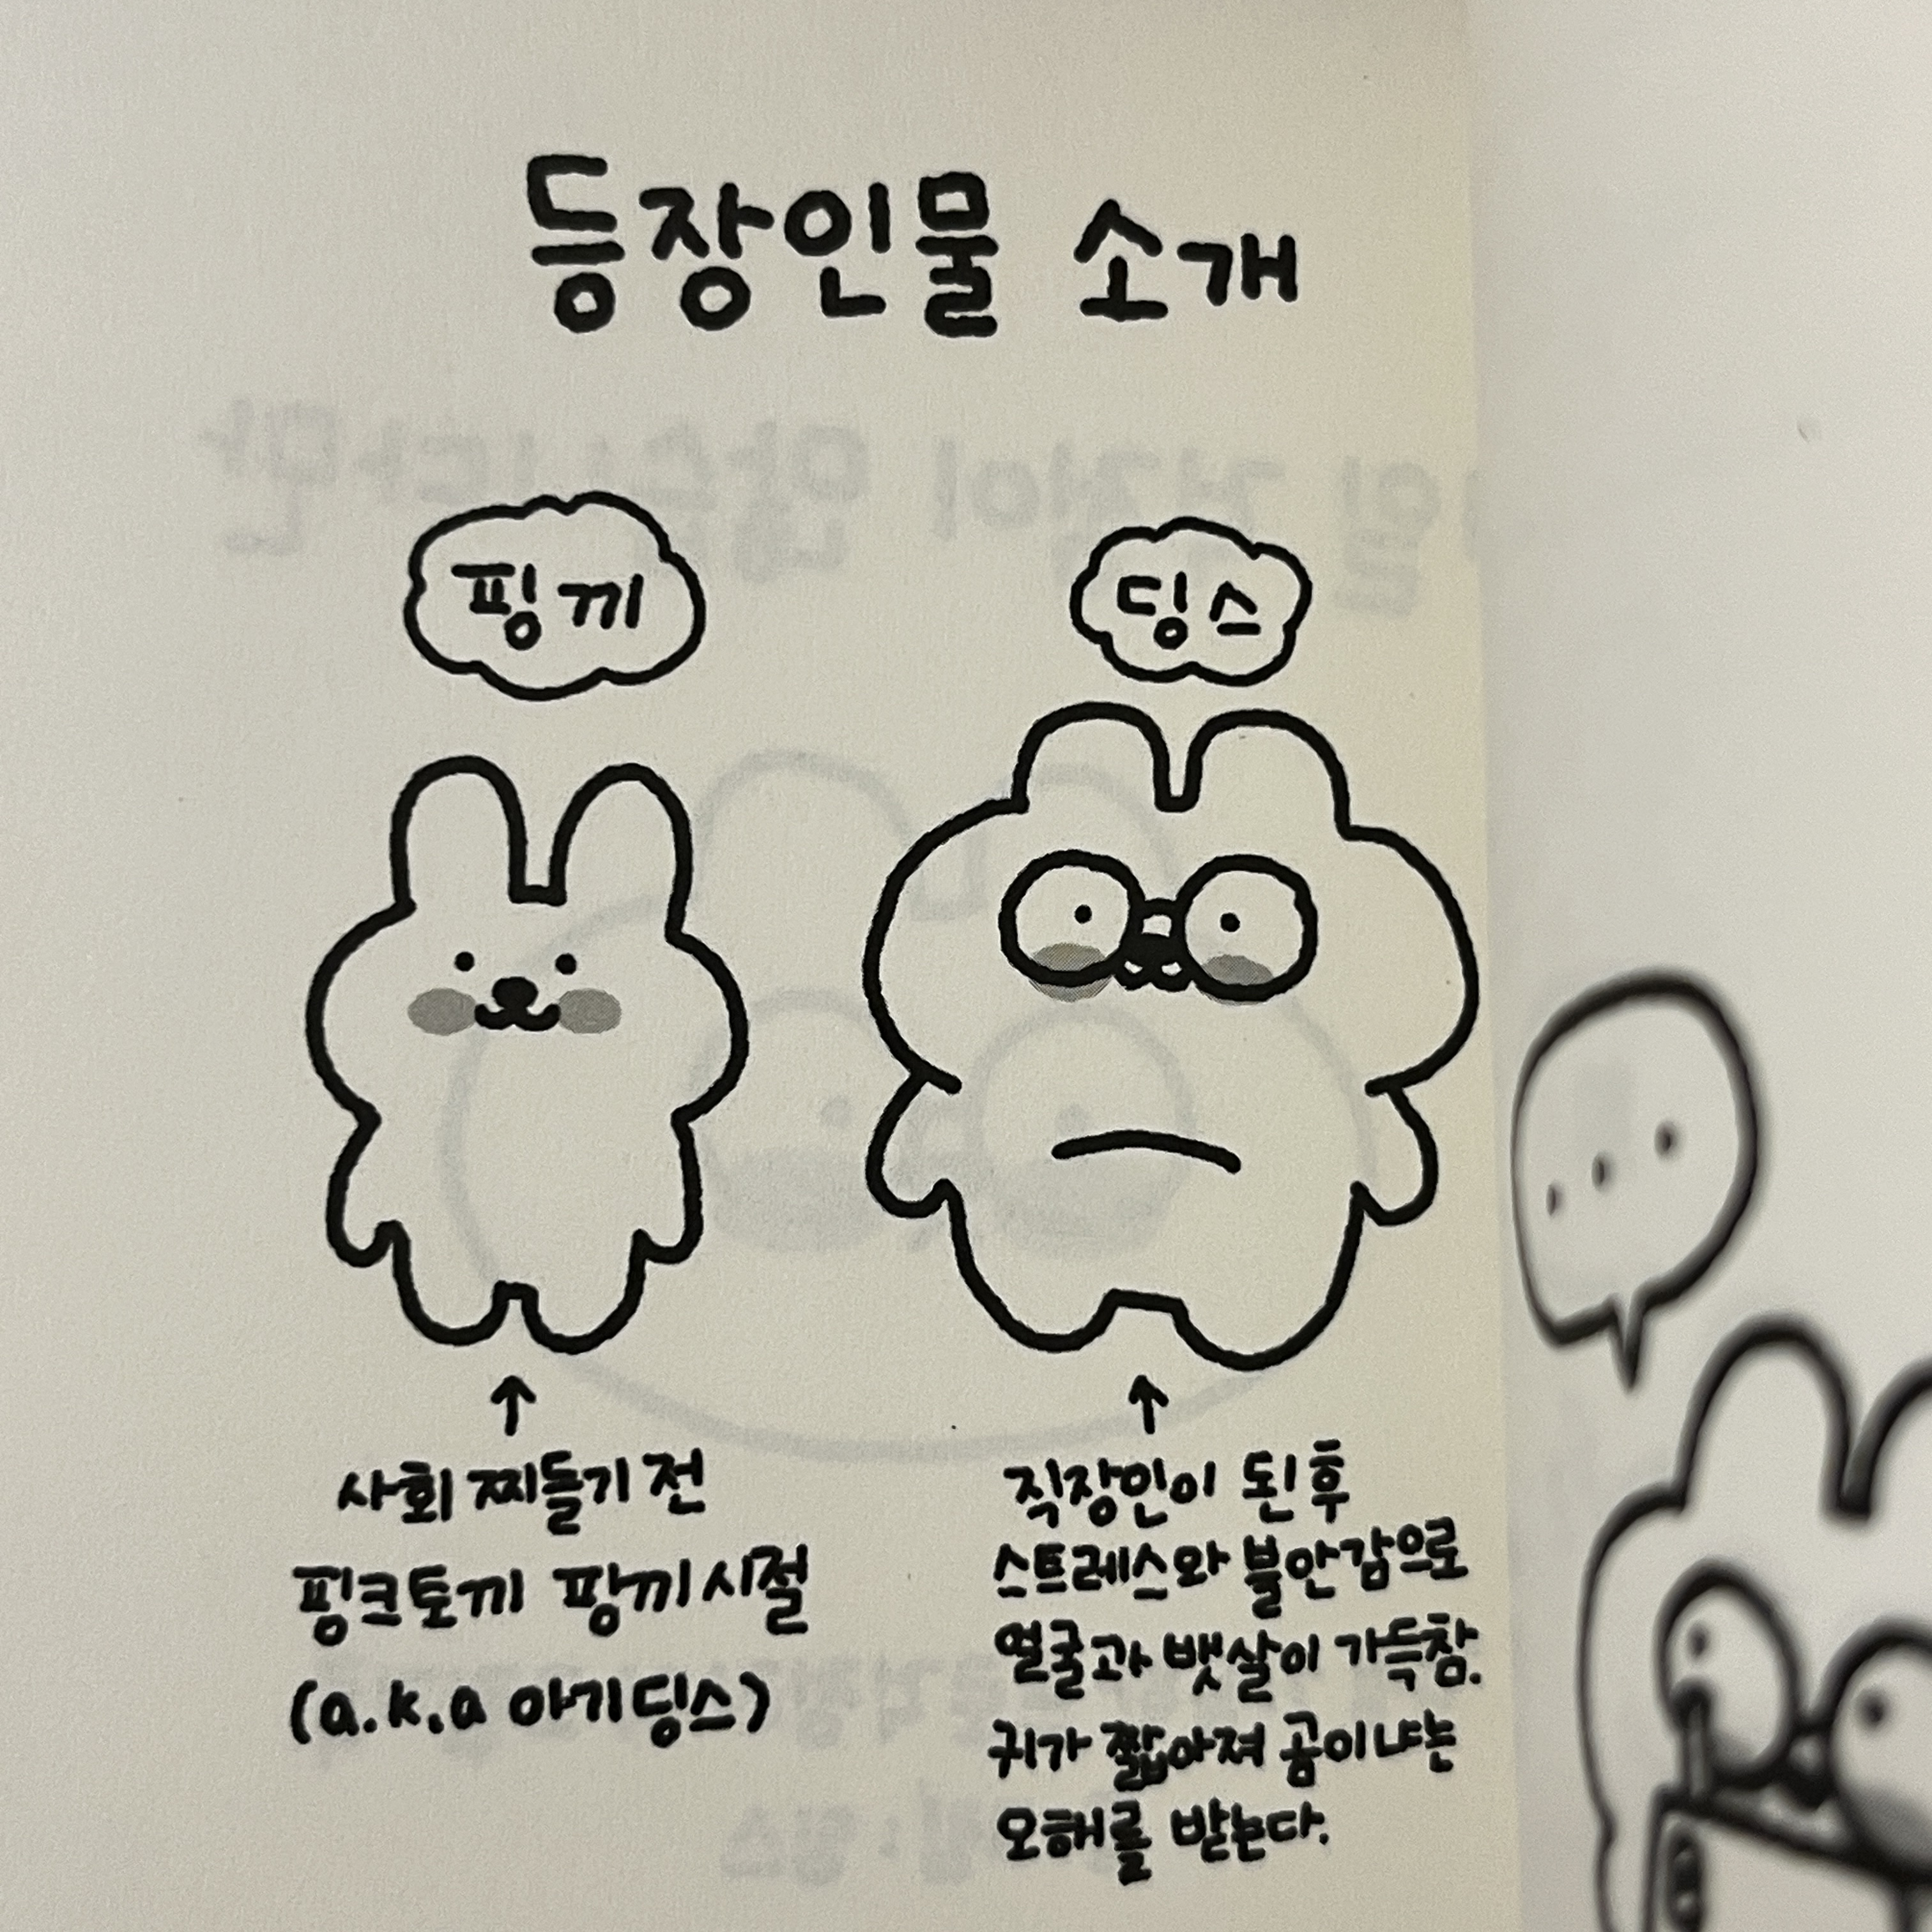 등장인물 소개
핑끼
딩스
사회 찌들기 전
핑크토끼 핑끼시절
(a.k.a 아기딩스)
직장인이 된 후
스트레스와 불안감으로
얼굴과 뱃살이 가득참.
귀가 짧아져 곰이냐는
오해를 받는다.